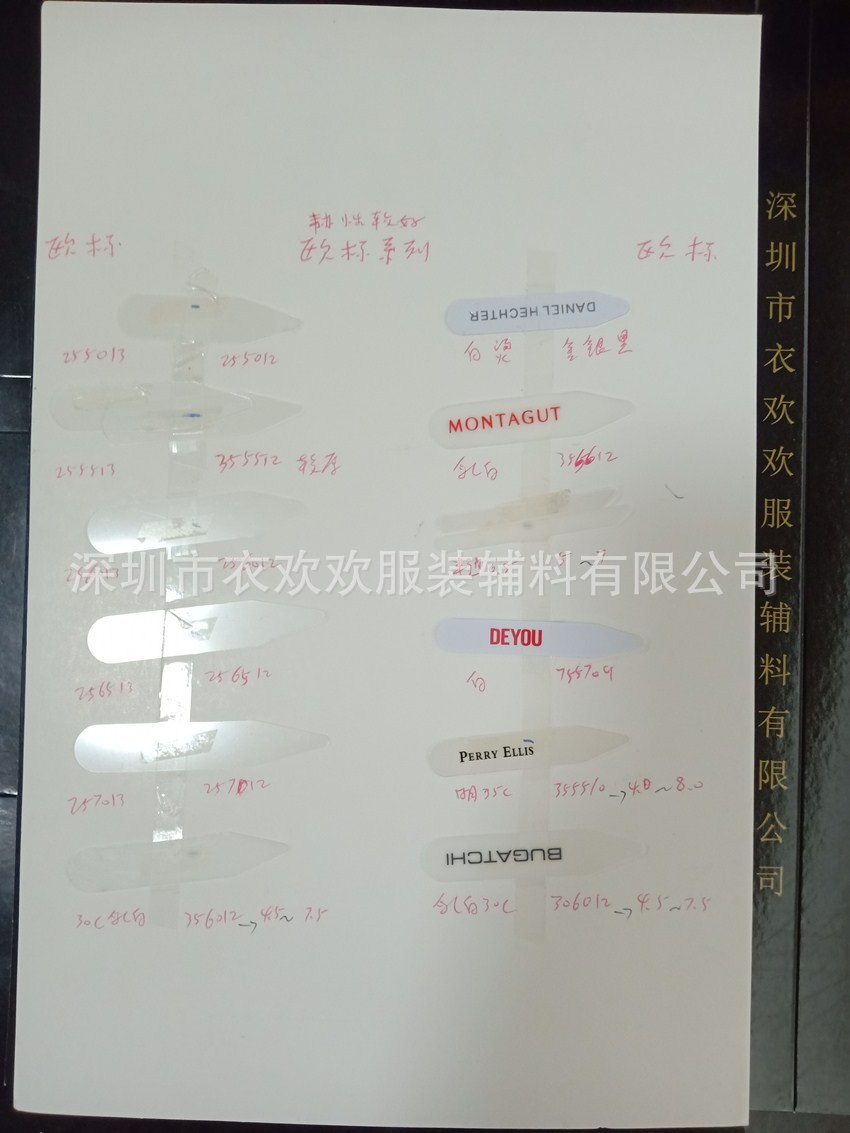 韧性较好
欧标
欧标系列
欧标
255013
255012
DANIEL HECHTER
白烫 金银黑
255513
355512 较厚
MONTAGUT
乳白
深圳市衣欢欢服装辅料有限公司
DEYOU
256513
256512
白
755709
PERRY ELLIS
257013
257012
明35C
355510→4.8~8.0
BUGATCHI
30C乳白
356012→4.5~7.5
乳白30C
306012→4.5~7.5
深圳市衣欢欢服装辅料有限公司